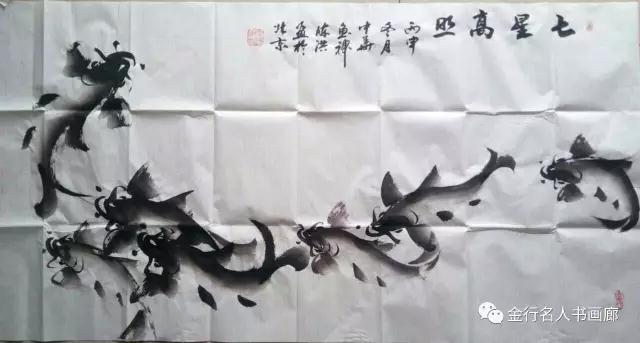 七星高照
丙申
冬月
中华
鱼神
陈洪
於
北京
金行名人书画廊